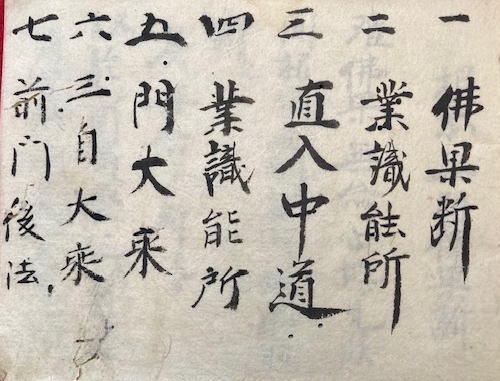 一 佛果断
二 業識能所
三 直入中道
四 業識能所
五 門大乘
六 三自大乘
七 前門後法